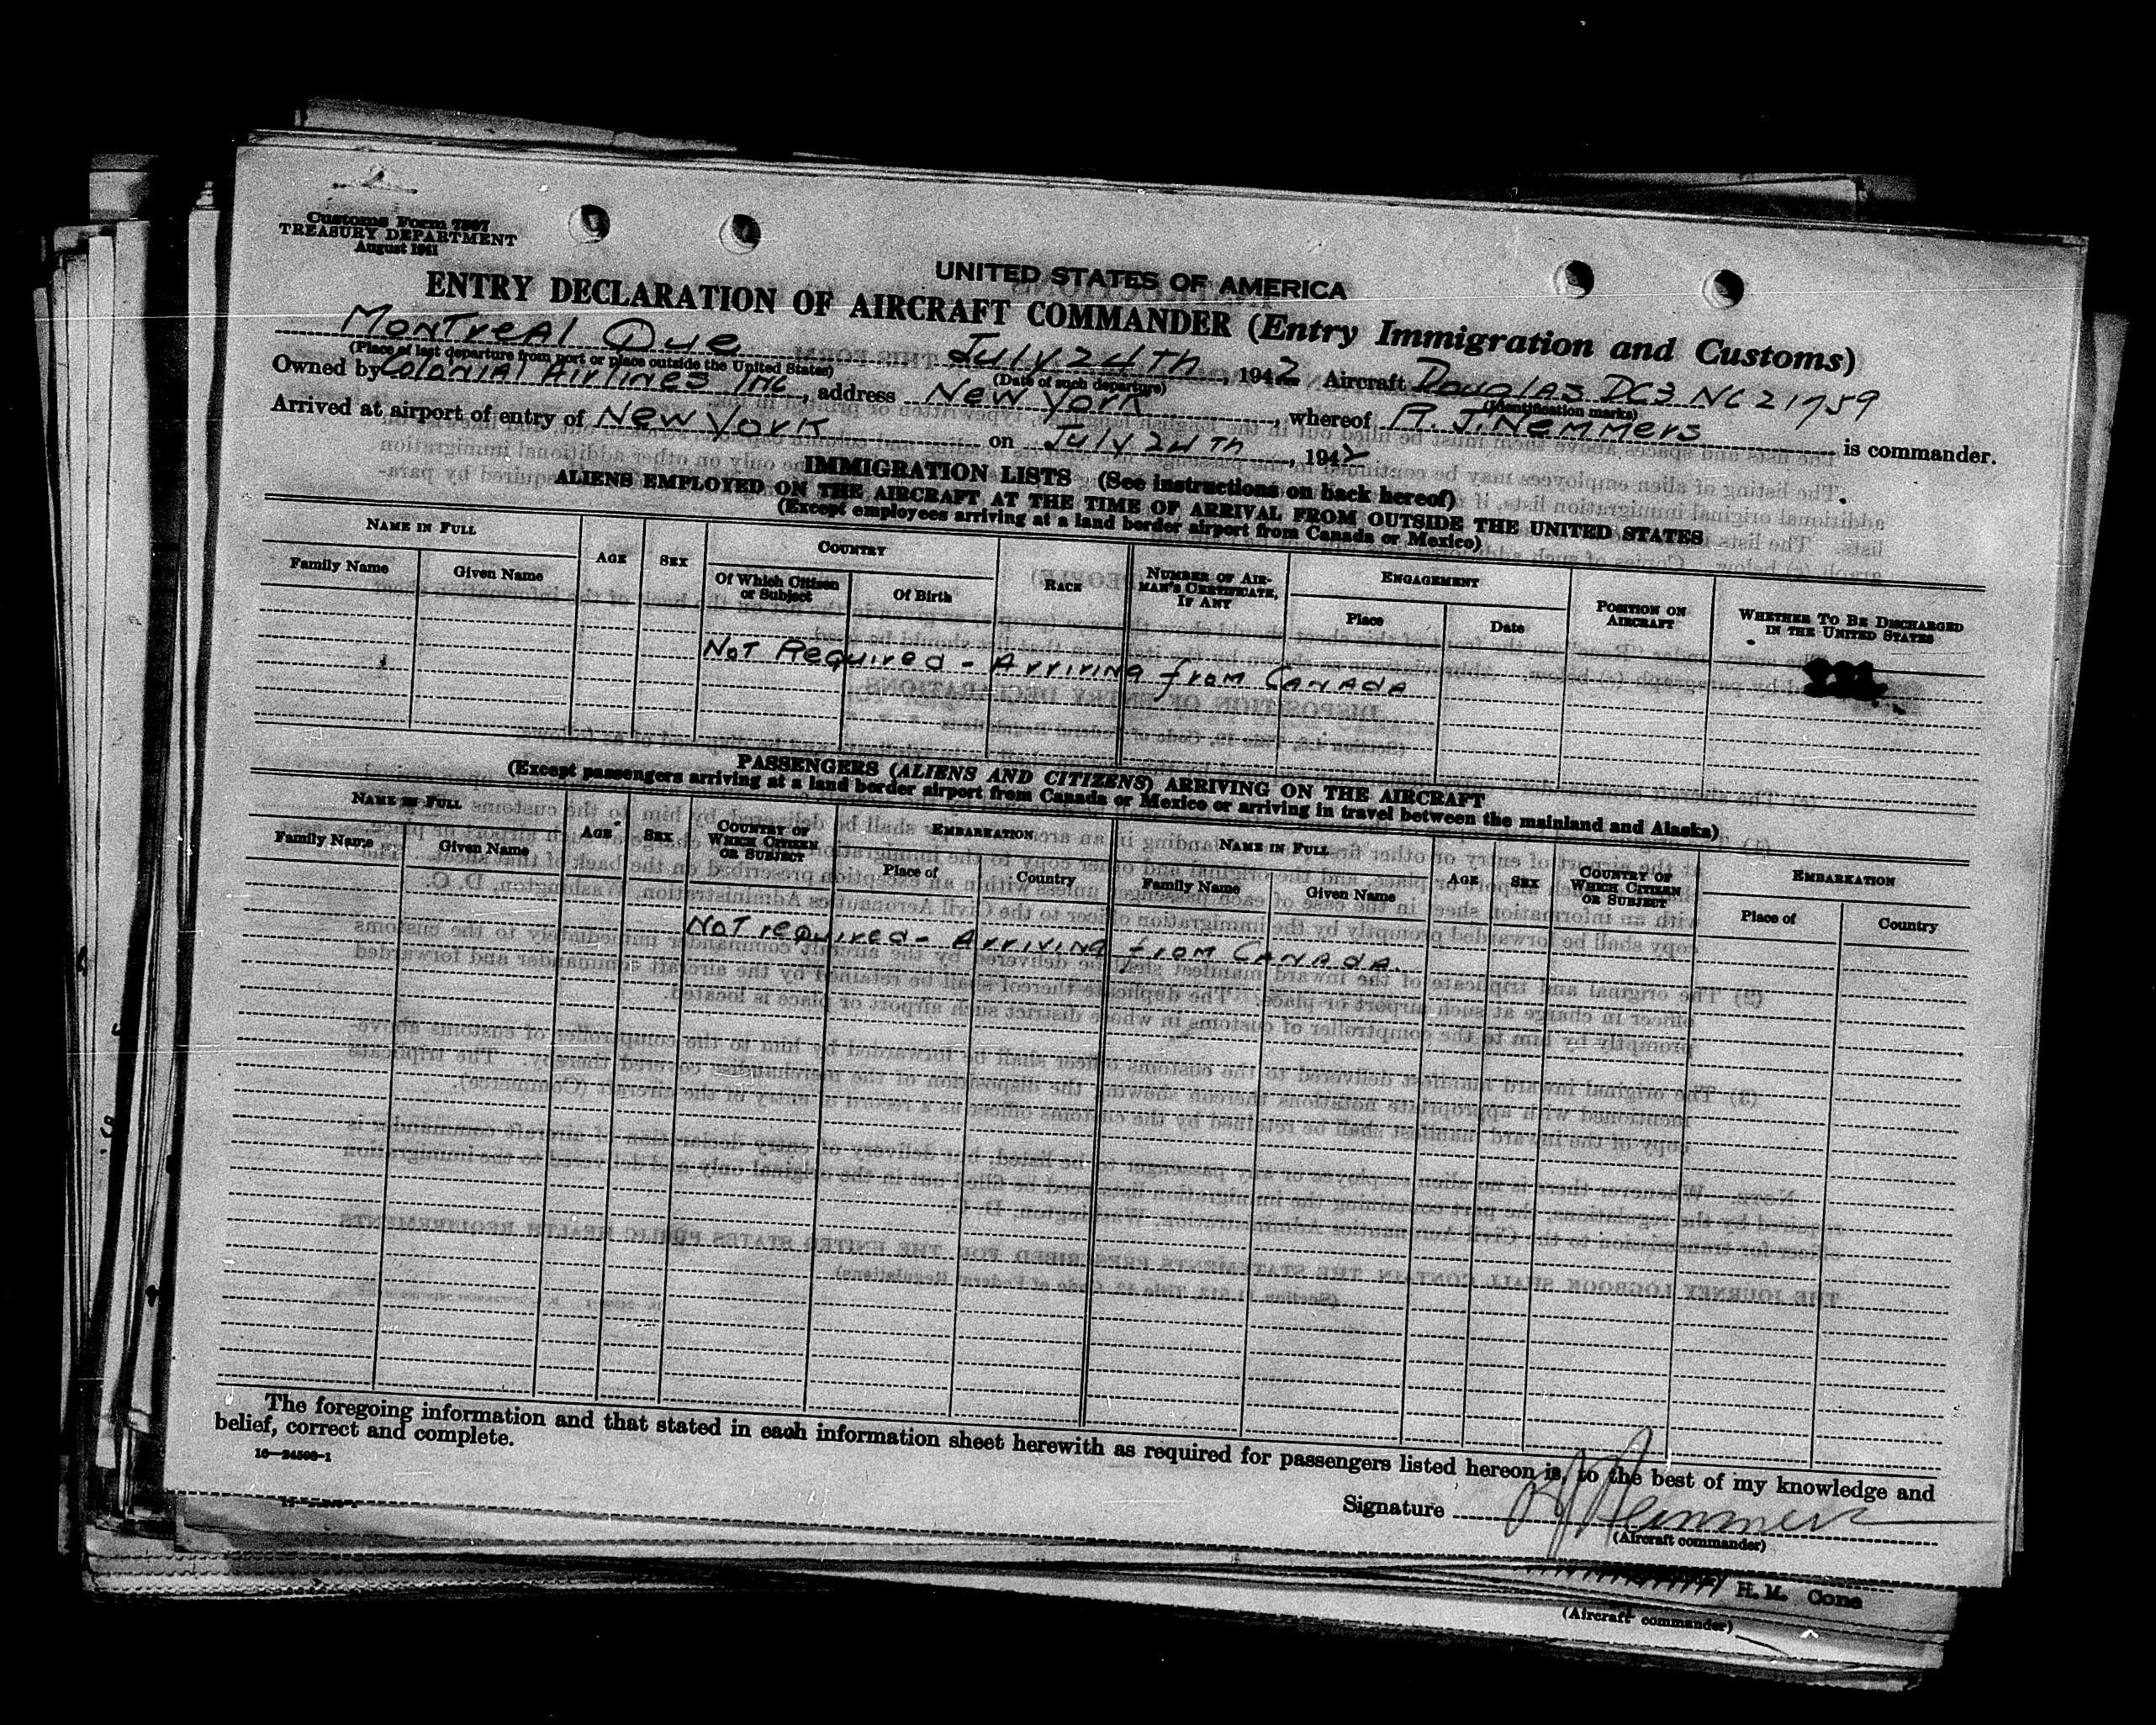 Customs Form 7507
TREASURY DEPARTMENT
August 1941
UNITED STATES OF AMERICA
ENTRY DECLARATION OF AIRCRAFT COMMANDER (Entry Immigration and Customs)
Montreal Que July 24th, 1942 Aircraft Douglas DC3 NC 21759
(Place of last departure from port or place outside the United States) (Date of such departure) (Identification marks)
Owned by Colonial Airlines Inc, address New York, whereof R. J. Nemmers is commander.
Arrived at airport of entry of New York on July 24th, 1942
IMMIGRATION LISTS (See instructions on back hereof)
ALIENS EMPLOYED ON THE AIRCRAFT AT THE TIME OF ARRIVAL FROM OUTSIDE THE UNITED STATES
(Except employees arriving at a land border airport from Canada or Mexico)
NAME IN FULL AGE SEX COUNTRY RACE NUMBER OF AIR-MAN'S CERTIFICATE, IF ANY ENGAGEMENT POSITION ON AIRCRAFT WHETHER TO BE DISCHARGED IN THE UNITED STATES
Family Name Given Name Of Which Citizen or Subject Of Birth Place Date
Not Required - Arriving from Canada
PASSENGERS (ALIENS AND CITIZENS) ARRIVING ON THE AIRCRAFT
(Except passengers arriving at a land border airport from Canada or Mexico or arriving in travel between the mainland and Alaska)
NAME IN FULL AGE SEX COUNTRY OF WHICH CITIZEN OR SUBJECT EMBARKATION NAME IN FULL AGE SEX COUNTRY OF WHICH CITIZEN OR SUBJECT EMBARKATION
Family Name Given Name Place of Country Family Name Given Name Place of Country
Not required - Arriving from Canada.
The foregoing information and that stated in each information sheet herewith as required for passengers listed hereon is, to the best of my knowledge and
belief, correct and complete.
16—24508-1
Signature R J Nemmers
(Aircraft commander)
H. M. Cone
(Aircraft commander)